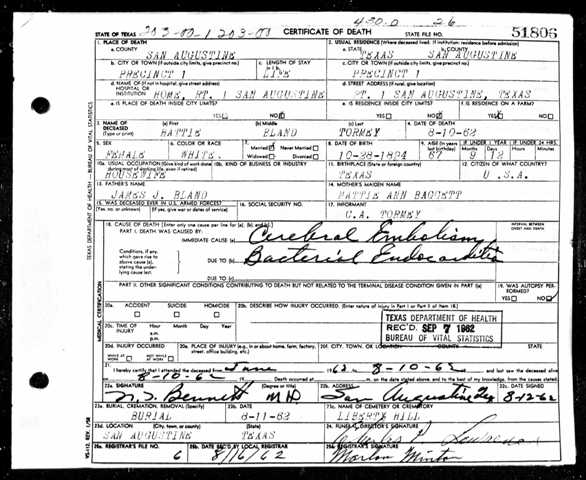 450.0 26
STATE OF TEXAS 203-00 / 203-00 CERTIFICATE OF DEATH STATE FILE NO. 51806
1. PLACE OF DEATH 2. USUAL RESIDENCE (Where deceased lived. If institution: residence before admission)
a. COUNTY SAN AUGUSTINE a. STATE TEXAS b. COUNTY SAN AUGUSTINE
b. CITY OR TOWN (If outside city limits, give precinct no.) c. LENGTH OF STAY c. CITY OR TOWN (If outside city limits, give precinct no.)
PRECINCT 1 LIFE PRECINCT 1
d. NAME OF (If not in hospital, give street address) HOSPITAL OR INSTITUTION HOME, RT. 1 SAN AUGUSTINE d. STREET ADDRESS (If rural, give location) RT. 1 SAN AUGUSTINE, TEXAS
e. IS PLACE OF DEATH INSIDE CITY LIMITS? YES NO e. IS RESIDENCE INSIDE CITY LIMITS? YES NO f. IS RESIDENCE ON A FARM? YES NO
3. NAME OF DECEASED (Type or print) (a) First (b) Middle (c) Last 4. DATE OF DEATH
HATTIE BLAND TORMEY 8-10-62
5. SEX 6. COLOR OR RACE 7. Married Never Married Widowed Divorced 8. DATE OF BIRTH 9. AGE (In years last birthday) IF UNDER 1 YEAR IF UNDER 24 HRS.
FEMALE WHITE 10-28-1894 67 9 12
10a. USUAL OCCUPATION (Give kind of work done 10b. KIND OF BUSINESS OR INDUSTRY 11. BIRTHPLACE (State or foreign country) 12. CITIZEN OF WHAT COUNTRY?
HOUSEWIFE TEXAS U.S.A.
13. FATHER'S NAME 14. MOTHER'S MAIDEN NAME
JAMES J. BLAND HATTIE ANN BAGGETT
15. WAS DECEASED EVER IN U.S. ARMED FORCES? 16. SOCIAL SECURITY NO. 17. INFORMANT
(Yes, no, or unknown) (If yes, give war or dates of service) C.A. TORMEY
18. CAUSE OF DEATH (Enter only one cause per line for (a), (b), and (c).) INTERVAL BETWEEN ONSET AND DEATH
PART I. DEATH WAS CAUSED BY:
IMMEDIATE CAUSE (a) Cerebral Embolism
Conditions, if any, which gave rise to above cause (a), stating the underlying cause last. DUE TO (b) Bacterial Endocarditis
DUE TO (c)
PART II. OTHER SIGNIFICANT CONDITIONS CONTRIBUTING TO DEATH BUT NOT RELATED TO THE TERMINAL DISEASE CONDITION GIVEN IN PART I (a) 19. WAS AUTOPSY PERFORMED? YES NO
20a. ACCIDENT SUICIDE HOMICIDE 20b. DESCRIBE HOW INJURY OCCURRED. (Enter nature of injury in Part I or Part II of item 18.)
20c. TIME OF INJURY Hour Month Day Year a.m. p.m.
TEXAS DEPARTMENT OF HEALTH
REC'D SEP 7 1962
BUREAU OF VITAL STATISTICS
20d. INJURY OCCURRED WHILE AT WORK NOT WHILE AT WORK 20e. PLACE OF INJURY (e.g., in or about home, farm, factory, street, office building, etc.) 20f. CITY, TOWN, OR LOCATION COUNTY STATE
21. I hereby certify that I attended the deceased from June 1962 8-10-62
8-10-62 Death occurred at m. on the date stated above, and to the best of my knowledge, from the causes stated.
22a. SIGNATURE (Degree or title) 22b. ADDRESS 22c. DATE SIGNED
Bennett MD San Augustine Tex 8-12-62
23a. BURIAL, CREMATION, REMOVAL (Specify) 23b. DATE 23c. NAME OF CEMETERY OR CREMATORY
BURIAL 8-11-62 LIBERTY HILL
23d. LOCATION (City, town, or county) (State) 24. FUNERAL DIRECTOR'S SIGNATURE
SAN AUGUSTINE TEXAS
25a. REGISTRAR'S FILE NO. 25b. DATE REC'D BY LOCAL REGISTRAR 25c. REGISTRAR'S SIGNATURE
6 8/16/62 Marlon Minton
TEXAS DEPARTMENT OF HEALTH — BUREAU OF VITAL STATISTICS
MEDICAL CERTIFICATION